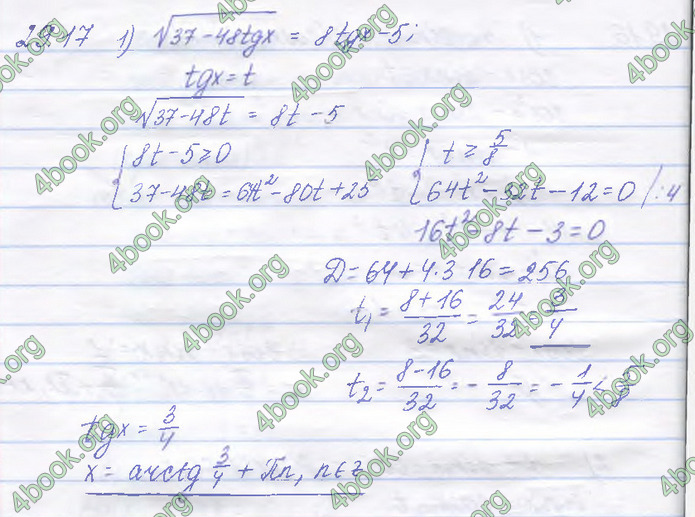 29.17 1) √(37-48tgx) = 8tgx-5;
tgx=t
√(37-48t) = 8t-5
{ 8t-5≥0
37-48t=64t²-80t+25
{ t≥5/8
64t²-32t-12=0 /:4
16t²-8t-3=0
D=64+4·3·16=256
t₁= (8+16)/32 = 24/32 = 3/4
t₂= (8-16)/32 = -8/32 = -1/4 < 5/8
tgx=3/4
x= arctg 3/4 + πn, n∈z
4book.org